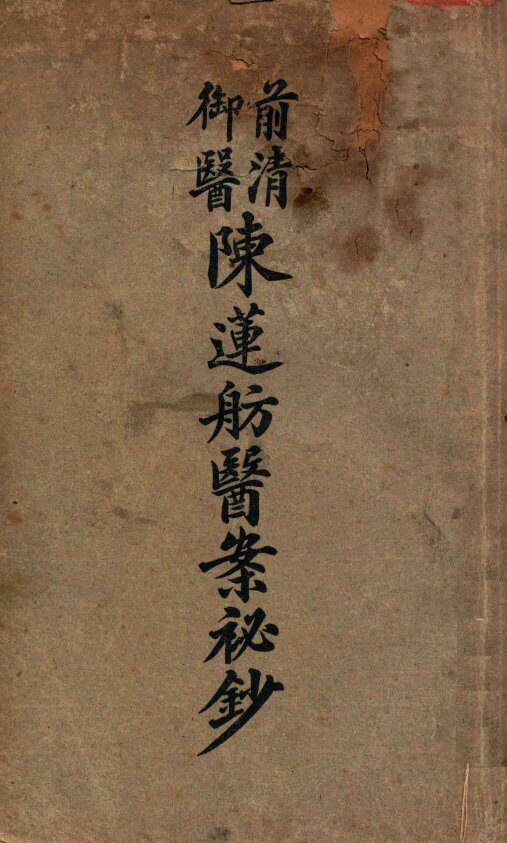 前清
御醫
陳蓮舫醫案祕鈔